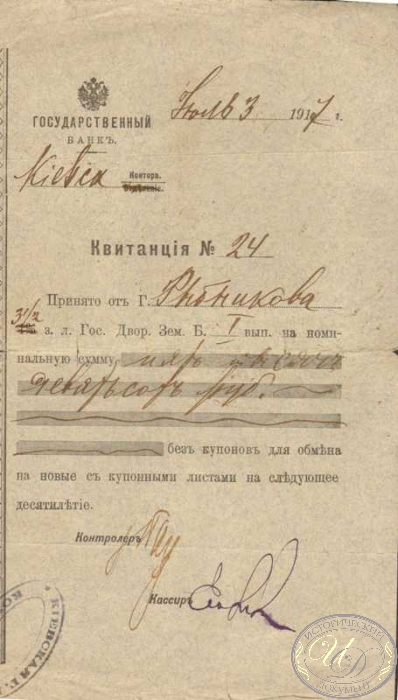 Июль 3 1917 г.
ГОСУДАРСТВЕННЫЙ
БАНКЪ.
Кіевск Контора.
Отдѣленіе.
Квитанція № 24
Принято отъ Г. Рѣпникова
3½
з. л. Гос. Двор. Зем. Б. I вып. на номи-
нальную сумму пять тысячъ
девятьсотъ руб.
безъ купоновъ для обмѣна
на новые съ купонными листами на слѣдующее
десятилѣтіе.
Контролеръ
Кассиръ
КІЕВСКАЯ
ИСТОРИЧЕСКИЙ
ДОКУМЕНТ